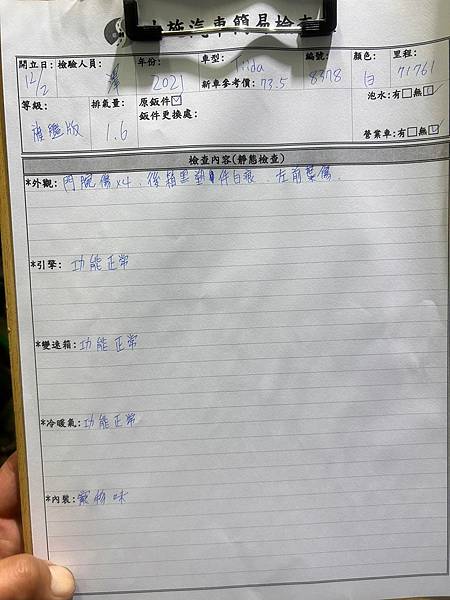 汽車簡易檢查
開立日: 檢驗人員: 年份: 車型: 編號: 顏色: 里程:
12/2 澤 2021 Tiida 8378 白 71761
新車參考價: 73.5
等級: 排氣量: 原鈑件☑ 泡水:有□無☑
旗艦版 1.6 鈑件更換處:
營業車:有□無☑
檢查內容(靜態檢查)
*外觀: 門腕傷x4、後箱黑塑件白痕、左前葉傷.
*引擎: 功能正常
*變速箱: 功能正常
*冷暖氣: 功能正常
*內裝: 寵物味